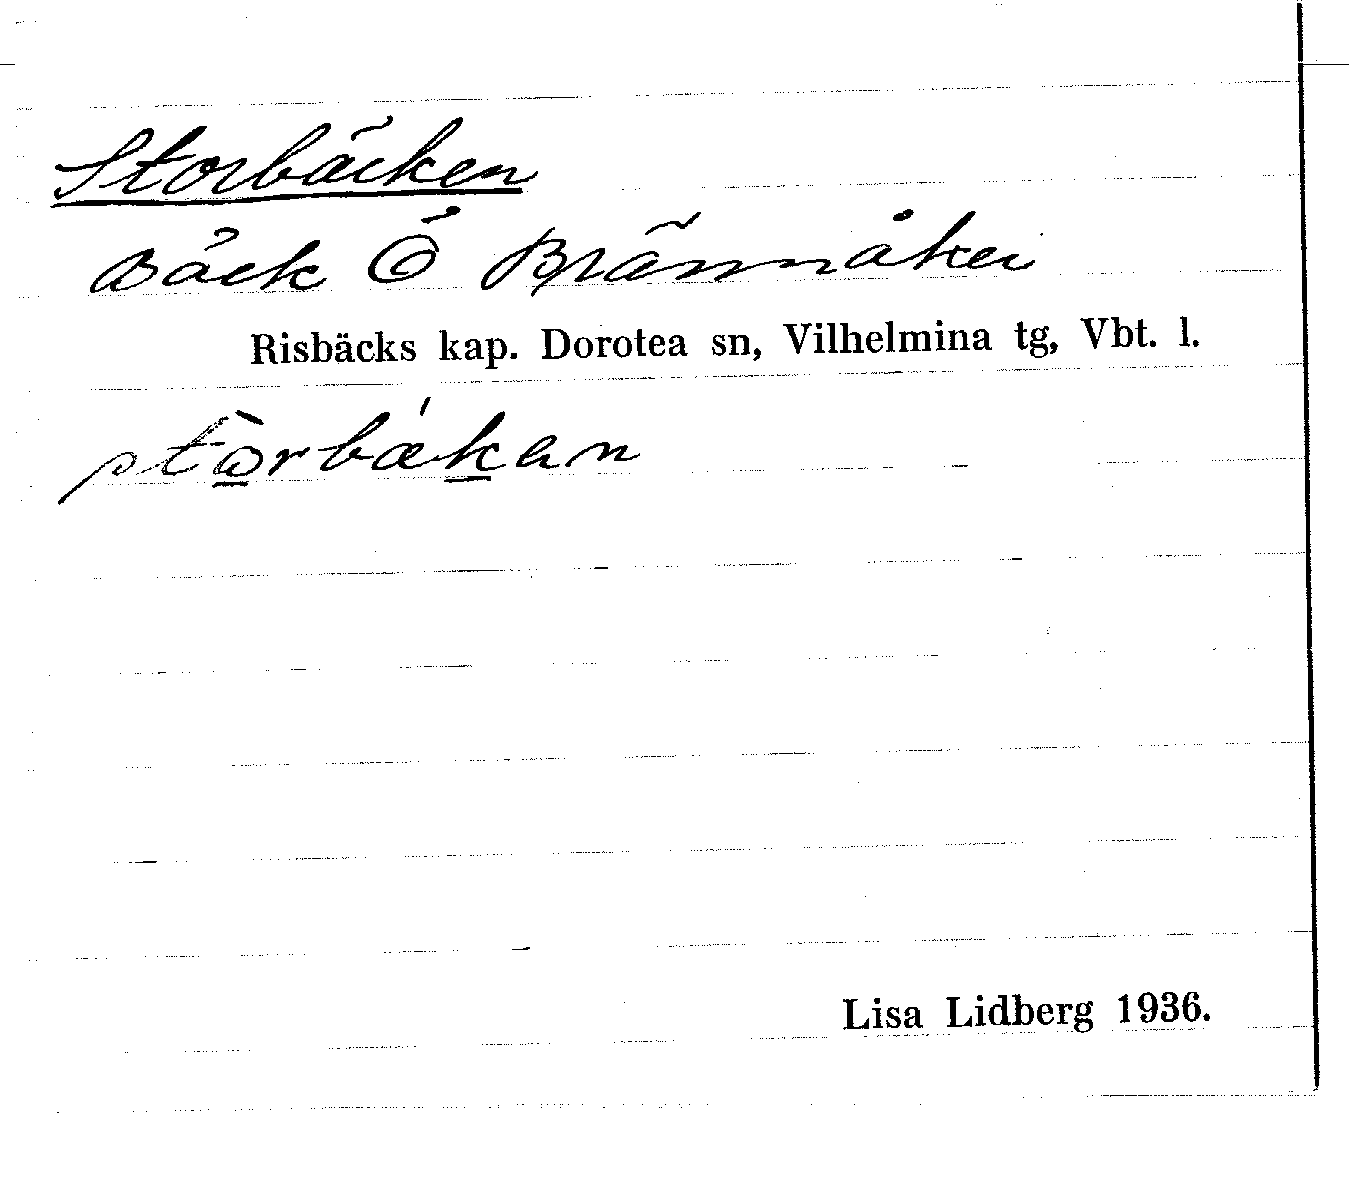 Storbäcken
Bäck Ö Brännåker
Risbäcks kap. Dorotea sn, Vilhelmina tg, Vbt. l.
Lisa Lidberg 1936.